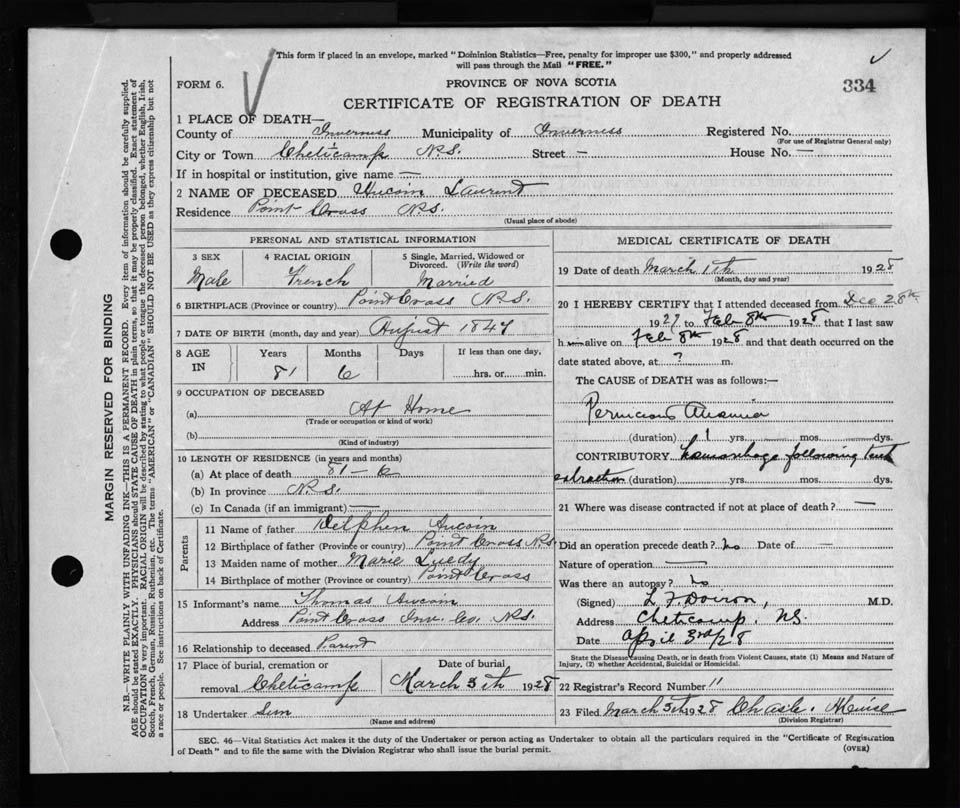 This form if placed in an envelope, marked "Dominion Statistics—Free, penalty for improper use $300," and properly addressed
will pass through the Mail "FREE."
FORM 6.
PROVINCE OF NOVA SCOTIA
334
CERTIFICATE OF REGISTRATION OF DEATH
1 PLACE OF DEATH—
County of Inverness Municipality of Inverness Registered No.
(For use of Registrar General only)
City or Town Cheticamp N.S. Street — House No. —
If in hospital or institution, give name —
2 NAME OF DECEASED Aucoin Laurent
Residence Point Cross N.S.
(Usual place of abode)
PERSONAL AND STATISTICAL INFORMATION
3 SEX
Male
4 RACIAL ORIGIN
French
5 Single, Married, Widowed or
Divorced. (Write the word)
Married
6 BIRTHPLACE (Province or country) Point Cross N.S.
7 DATE OF BIRTH (month, day and year) August 1847
8 AGE
IN
Years
81
Months
6
Days
If less than one day,
hrs. or min.
9 OCCUPATION OF DECEASED
(a) At Home
(Trade or occupation or kind of work)
(b)
(Kind of industry)
10 LENGTH OF RESIDENCE (in years and months)
(a) At place of death 81 – 6
(b) In province N.S.
(c) In Canada (if an immigrant) —
Parents
11 Name of father Delphin Aucoin
12 Birthplace of father (Province or country) Point Cross N.S.
13 Maiden name of mother Marie
14 Birthplace of mother (Province or country) Point Cross
15 Informant's name Thomas Aucoin
Address Point Cross Inv. Co. N.S.
16 Relationship to deceased Parent
17 Place of burial, cremation or
removal Cheticamp
Date of burial
March 5th 1928
18 Undertaker
(Name and address)
MEDICAL CERTIFICATE OF DEATH
19 Date of death March 1th 1928
(Month, day and year)
20 I HEREBY CERTIFY that I attended deceased from Dec 28th
1927 to Feb 8th 1928 that I last saw
h im alive on Feb 8th 1928 and that death occurred on the
date stated above, at ? m.
The CAUSE of DEATH was as follows:—
Pernicious Anaemia
(duration) 1 yrs. mos. dys.
CONTRIBUTORY hemorrhage following teeth
extraction (duration) yrs. mos. dys.
21 Where was disease contracted if not at place of death? —
Did an operation precede death? no Date of —
Nature of operation —
Was there an autopsy? no
(Signed) L F Doiron, M.D.
Address Cheticamp. N.S.
Date April 3rd/28
State the Disease causing Death, or in death from Violent Causes, state (1) Means and Nature of
Injury, (2) whether Accidental, Suicidal or Homicidal.
22 Registrar's Record Number 11
23 Filed March 5th 1928
(Division Registrar)
SEC. 46—Vital Statistics Act makes it the duty of the Undertaker or person acting as Undertaker to obtain all the particulars required in the "Certificate of Registration
of Death" and to file the same with the Division Registrar who shall issue the burial permit.
(OVER)
MARGIN RESERVED FOR BINDING
N.B.—WRITE PLAINLY WITH UNFADING INK—THIS IS A PERMANENT RECORD. Every item of information should be carefully supplied.
AGE should be stated EXACTLY. PHYSICIANS should STATE CAUSE OF DEATH in plain terms, so that it may be properly classified. Exact statement of
OCCUPATION is very important. RACIAL ORIGIN will be described by stating to what people or tongue the deceased person belonged, whether English, Irish,
Scotch, French, German, Russian, Ruthenian, etc. The terms "AMERICAN" or "CANADIAN" SHOULD NOT BE USED as they express citizenship but not
a race or people. See instructions on back of Certificate.